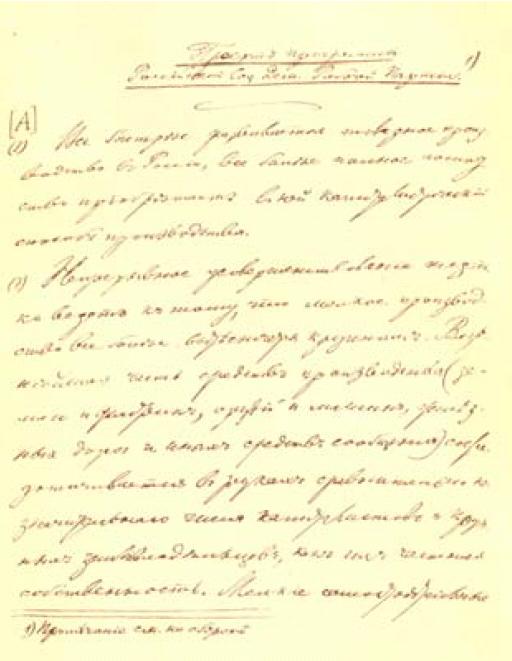 Проект программы 1)
Российской Соц. Дем. Рабочей Партии.
[A]
(1) Все быстрее развивается товарное произ
водство в России, все более полное господ
ство приобретает в ней капиталистический
способ производства.
(2) Непрерывное усовершенствование техни
ки ведет к тому, что мелкое производ
ство все более вытесняется крупным.
часть средств производства (зе-
мли и фабрик, орудий и машин, желез-
ных дорог и иных средств сообщения) сосре
доточивается в руках сравнительно не
значительного числа капиталистов и круп
ных землевладельцев, как их частная
собственность. Мелкие самостоятельные
1) Примѣчаніе см. на обороте